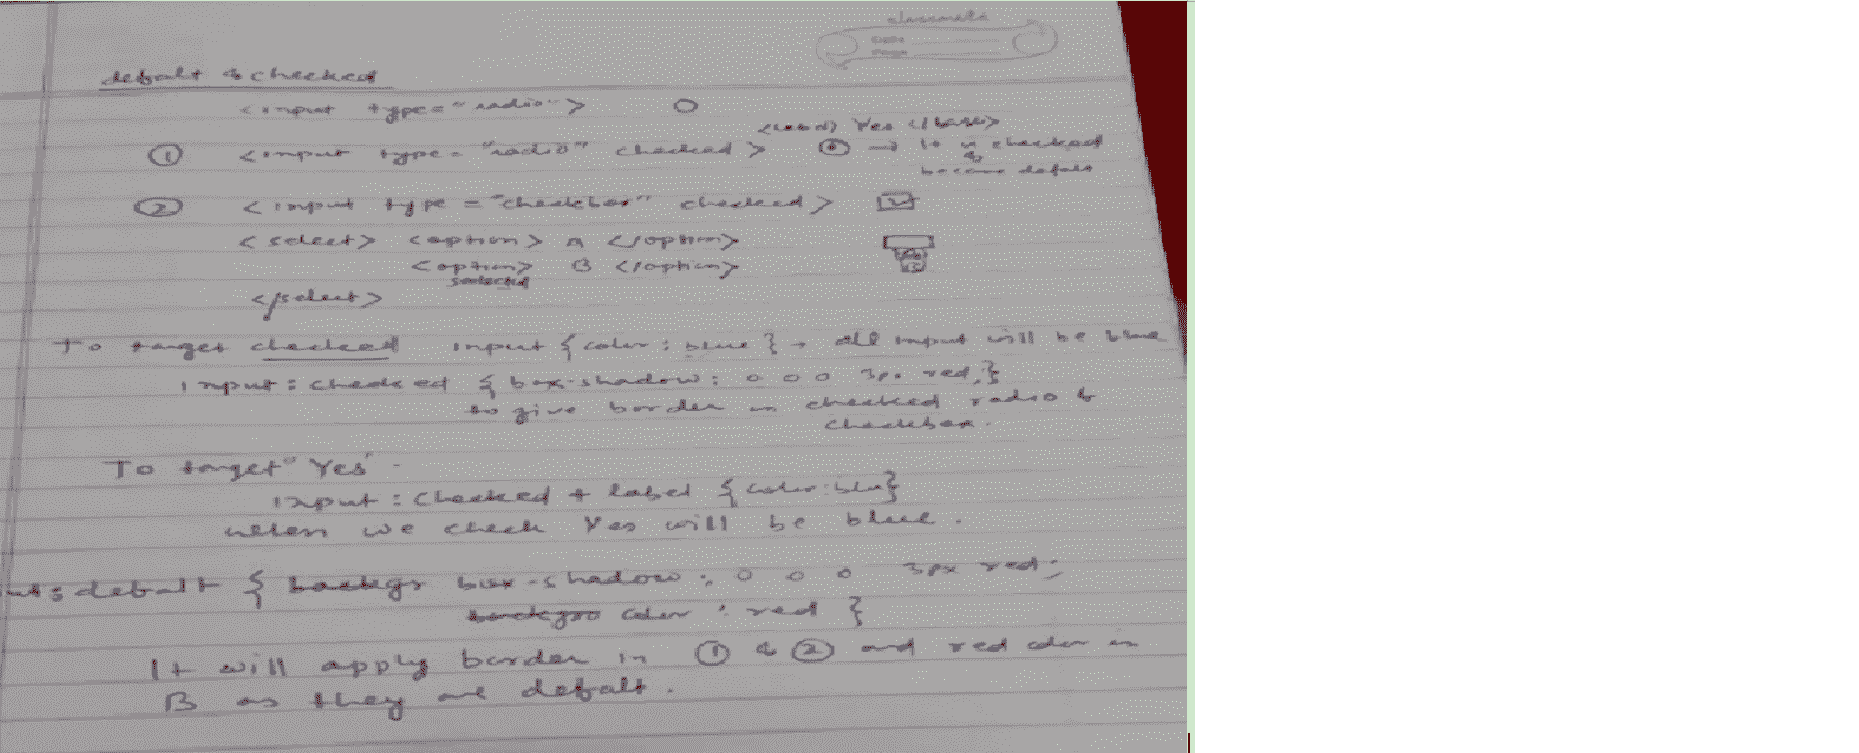 classmate
Date
Page
defalt & checked
<input type="radio">
<label> Yes </label>
① <input type="radio" checked> → It is checked
& become defalt
② <input type="checkbox" checked>
<select> <option> A </option>
<option> B </option>
selected
</select>
To target checked input {color: blue} → all input will be blue
input:checked { box-shadow: 0 0 0 3px red;}
to give border in checked radio &
checkbox.
To target "Yes" -
input:checked + label {color:blue}
when we check Yes will be blue.
:defalt { backgr box-shadow: 0 0 0 3px red;
backgro color: red }
It will apply border in ① & ② and red color in
B as they are defalt.